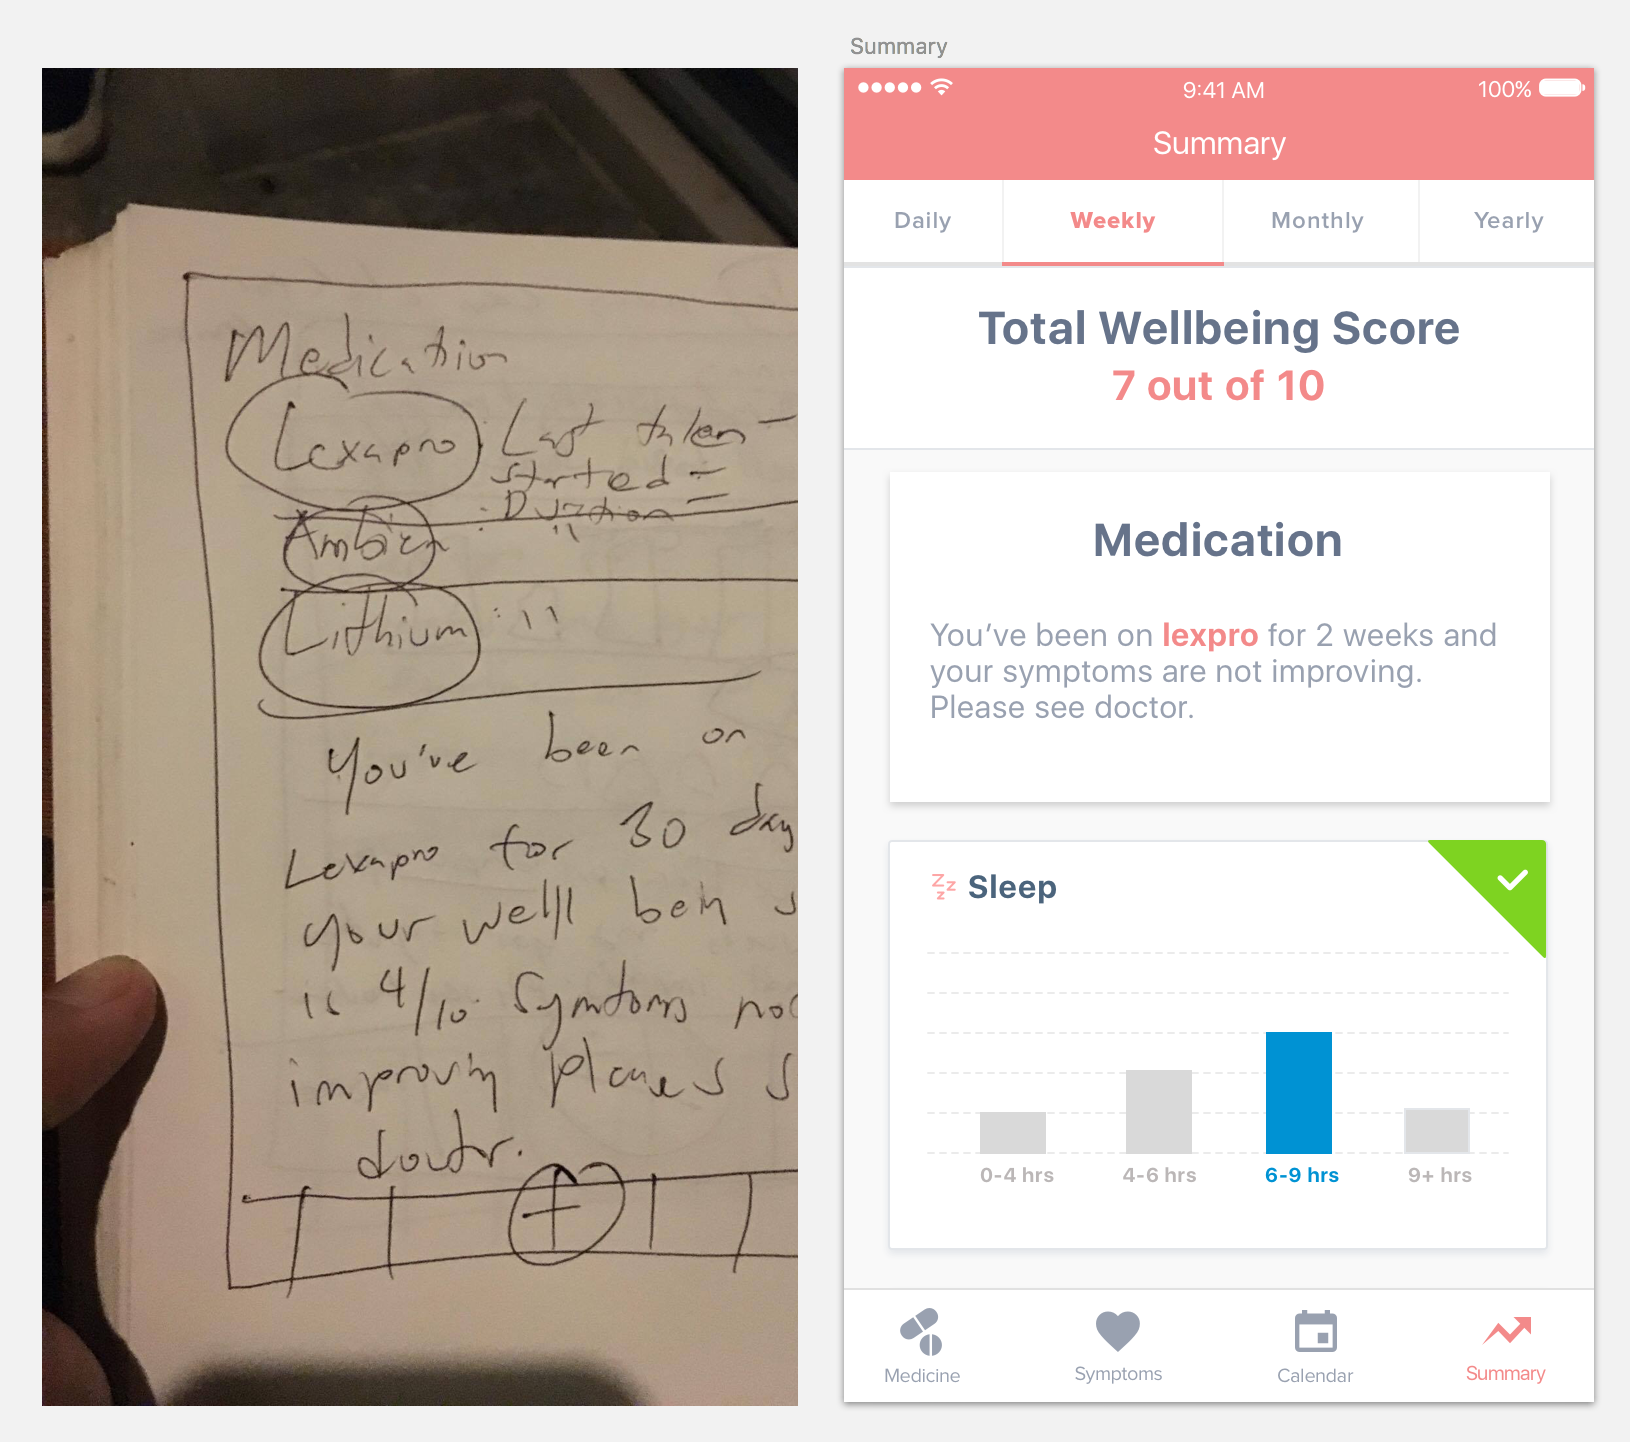 Summary
Medication
Lexapro : Last taken -
started =
Duration =
Ambien : "
Lithium : "
You've been on
Lexapro for 30 day
your welll bein s
is 4/10. Symtoms no
improvin s
doutr.
+
9:41 AM
100%
Summary
Daily Weekly Monthly Yearly
Total Wellbeing Score
7 out of 10
Medication
You’ve been on lexpro for 2 weeks and
your symptoms are not improving.
Please see doctor.
zzz Sleep
0-4 hrs 4-6 hrs 6-9 hrs 9+ hrs
Medicine Symptoms Calendar Summary